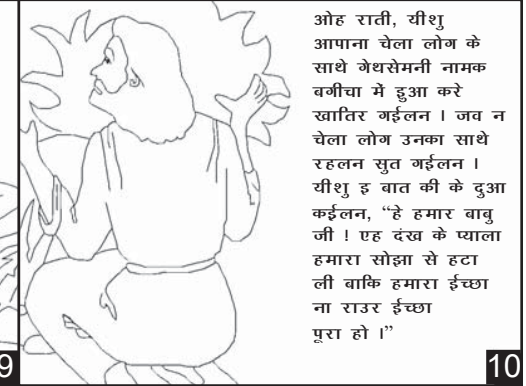 ओह राती, यीशु
आपाना चेला लोग के
साथे गेथसेमनी नामक
बगीचा में दुआ करे
खातिर गईलन । जव न
चेला लोग उनका साथे
रहलन सुत गईलन ।
यीशु इ बात की के दुआ
कईलन, “हे हमार बाबु
जी ! एह दंख के प्याला
हमारा सोझा से हटा
ली बाकि हमारा ईच्छा
ना राउर ईच्छा
पूरा हो ।”
9
10